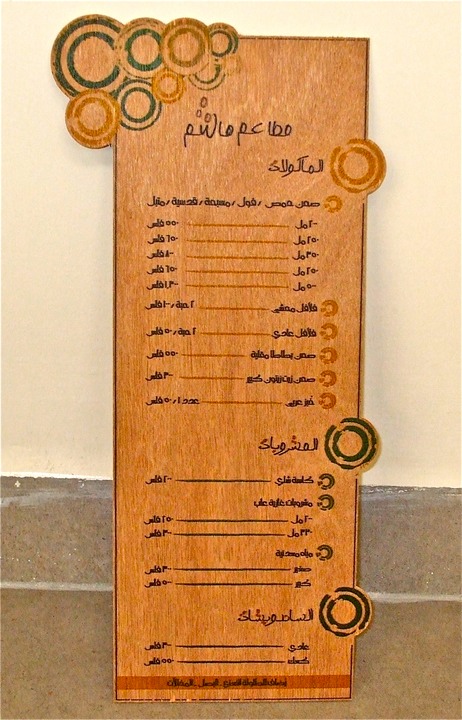 مطاعم هاشم
المأكولات
صحن حمص / فول / مسبحة / قدسية / متبل
٢٠٠ مل ٥٥٠ فلس
٢٥٠ مل ٦٥٠ فلس
٣٥٠ مل ٨٠٠ فلس
٢٥٠ مل ٦٥٠ فلس
٥٠٠ مل
فلافل محشي ٢ حبة / ١٠٠ فلس
فلافل عادي ٢ حبة / ٥٠ فلس
صحن بطاطا مقلية ٥٥٠ فلس
صحن زيت زيتون كبير ٣٠٠ فلس
خبز عربي عدد ١ / ٥٠ فلس
المشروبات
كاسة شاي ٢٠٠ فلس
مشروبات غازية علب
٢٠٠ مل ٢٥٠ فلس
٣٣٠ مل ٣٠٠ فلس
مياه معدنية
صغير ٣٠٠ فلس
كبير ٥٠٠ فلس
الساندويشات
عادي ٣٠٠ فلس
كعك ٥٥٠ فلس